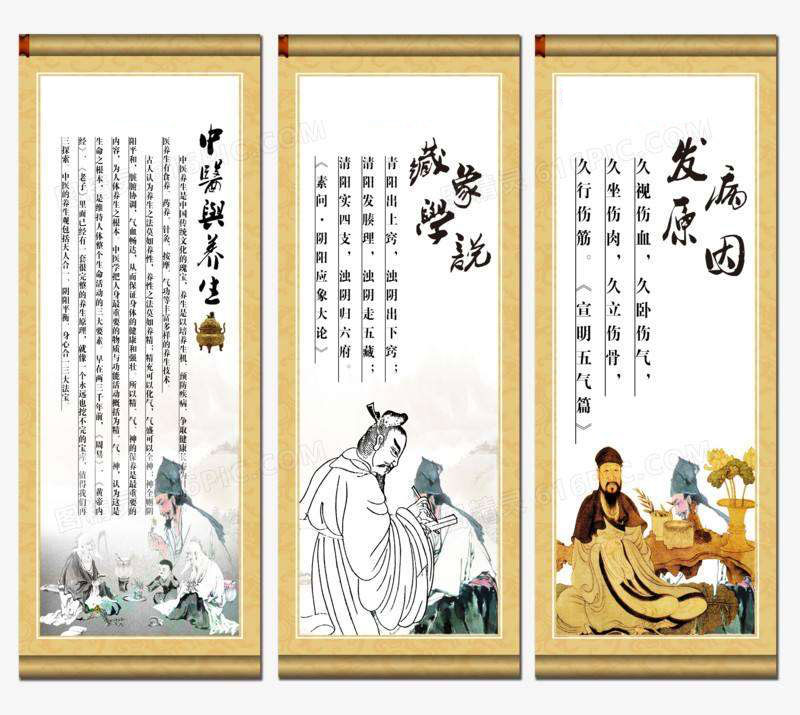 中醫與养生
中医养生是中国传统文化的瑰宝，养生是以培养生机、预防疾病、争取健康
医养生有食养、药养、针灸、按摩、气功等丰富多样的养生技术
古人认为养生之法莫如养性，养性之法莫如养精；精充可以化气，气盛可以全神；神全则阴
阳平和，脏腑协调，气血畅达，从而保证身体的健康和强壮 所以精、气、神的保养是最重要的
内容，为人体养生之根本 中医学把人身最重要的物质与功能活动概括为精、气、神，认为这是
生命之根本，是维持人体整个生命活动的三大要素 早在两三千年前，《周易》、《黄帝内
经》、《老子》里面已经有一套很完整的养生原理，就像一个永远也挖不完的宝 值得我们再
三探索 中医的养生观包括天人合一、阴阳平衡、身心合一三大法宝
藏象學説
清阳出上窍，浊阴出下窍；
清阳发腠理，浊阴走五藏；
清阳实四支，浊阴归六府。
《素问·阴阳应象大论》
病因
发原
久视伤血，久卧伤气，
久坐伤肉，久立伤骨，
久行伤筋。《宣明五气篇》
616PIC.COM